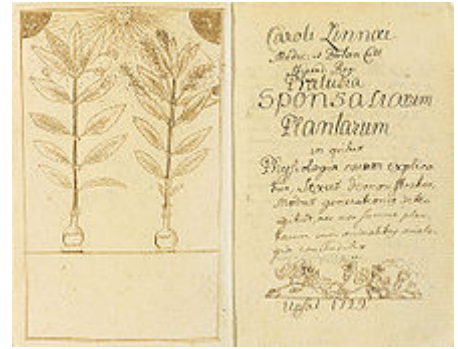 Caroli Linnæi
Medic. et Botan. Cult
Stipend. Reg.
Præludia
Sponsaliarum
Plantarum
in quibus
Physiologia earum explica
tur, Sexus demonstratur,
Modus generationis dete-
gitur, nec non summa plan-
tarum cum animalibus analo-
gia concluditur
Upsal 1729.